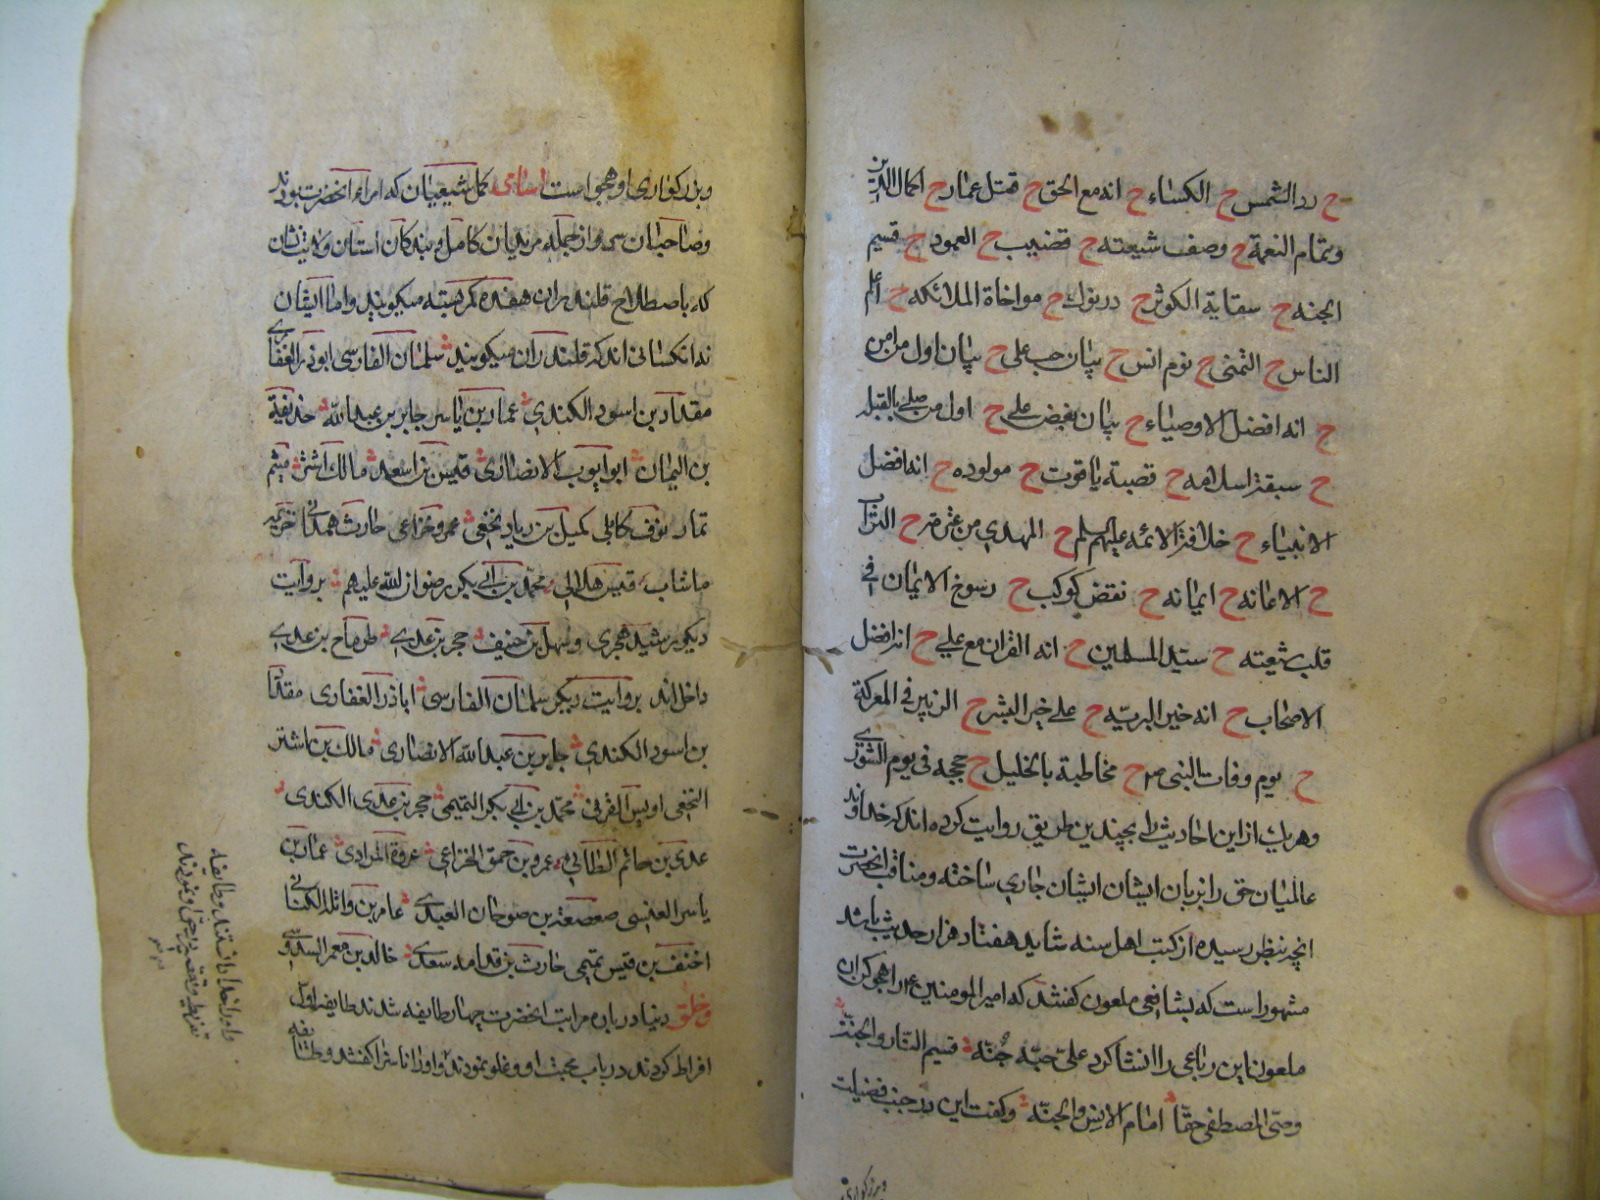 ح رد الشمس ح الكساء ح انه مع الحق ح قتل عمار ح اكمال الدين
وتمام النعمة ح وصف شيعته ح قضيب ح العمود ح قسيم
الجنه ح سقاية الكوثر ح درنوك ح مواخاة الملائكه ح اعلم
الناس ح التمنى ح نوم انس ح بيان حب على ح بيان اول من امن
ح انه افضل الاوصياء ح بيان بغض على ح اول من صلى بالقبله
ح سبقة اسلامه ح قصبة ياقوت ح مولوده ح انه افضل
الانبياء ح خلافة الائمه عليهم سلم ح المهدي من عترته ح التراب
ح الاعانه ح ايمانه ح نقض كوكب ح رسوخ الايمان فى
قلب شيعته ح سيد المسلمين ح انه القران مع على ح انه افضل
الاصحاب ح انه خير البريه ح على خير البشر ح الزبير فى المعركة
ح يوم وفات النبى ص ح مخاطبة بالخليل ح حججه فى يوم الشورى
وهريك از اين احاديث را بچندين طريق روايت كرده اند كه خداوند
عالميان حق را بزبان ايشان ايشان جارى ساخته ومناقب انحضرت
انچه بنظر رسيده از كتب اهل سنه شايد هفتاد هزار حديث باشد
مشهور است كه بشافعى ملعون كفتند كه امير المومنين ع را هجو كن ان
ملعون اين رباعى را انشا كرد على حبه جنه قسيم النار والجنه
وصى المصطفى حقا امام الانس والجنه وكفت اين در جنب فضيلت
وبزركوارى
وبزركوارى او هجو است اسامى كمل شيعيان كه امراء انحضرت بودند
وصاحبان سر واز جمله مريدان كامل وبندكان استان ولايتشان
كه باصطلاح قلندران هفده كمر بسته ميكويند واما ايشان
ند انكسانى اند كه قلندران ميكويند سلمان الفارسى ابوذر الغفارى
مقداد بن اسود الكندى عمار بن ياسر جابر بن عبد الله حذيفة
بن اليمان ابو ايوب الانصارى قيس بن اسعد مالك اشتر ميثم
تمار نوف كاملى كميل بن زياد نخعى عمرو خزاعى حارث همدانى خزيمه
ماشاب قيس هلالى محمد بن ابى بكر رضوان الله عليهم بروايت
ديكر رشيد هجرى وسهل بن حنيف حجر بن عدى طرماح بن عدى
داخل اند بروايت ديكر سلمان الفارسى اباذر الغفارى مقداد
بن اسود الكندى جابر بن عبد الله الانصارى مالك بن اشتر
النخعى اويس القرنى محمد بن ابى بكر التميمى حجر بن عدى الكندى
عدى بن حاتم الطائى عمرو بن حمق الخزاعى عروة المرادى عمار بن
ياسر العنسى صعصعة بن صوحان العبدى عامر بن واثلة الكنانى
احنف بن قيس تميمى حارث بن قدامه سعدى خالد بن معمر السدوسى
وخلق دنيا درباره مراتب انحضرت چهار طايفه شدند طايفه اول
افراط كردند در باب محبت او وغلو نمودند واورا ناسزا كفتند وطايفه
واورا خدا دانستند وطايفه
تفريط